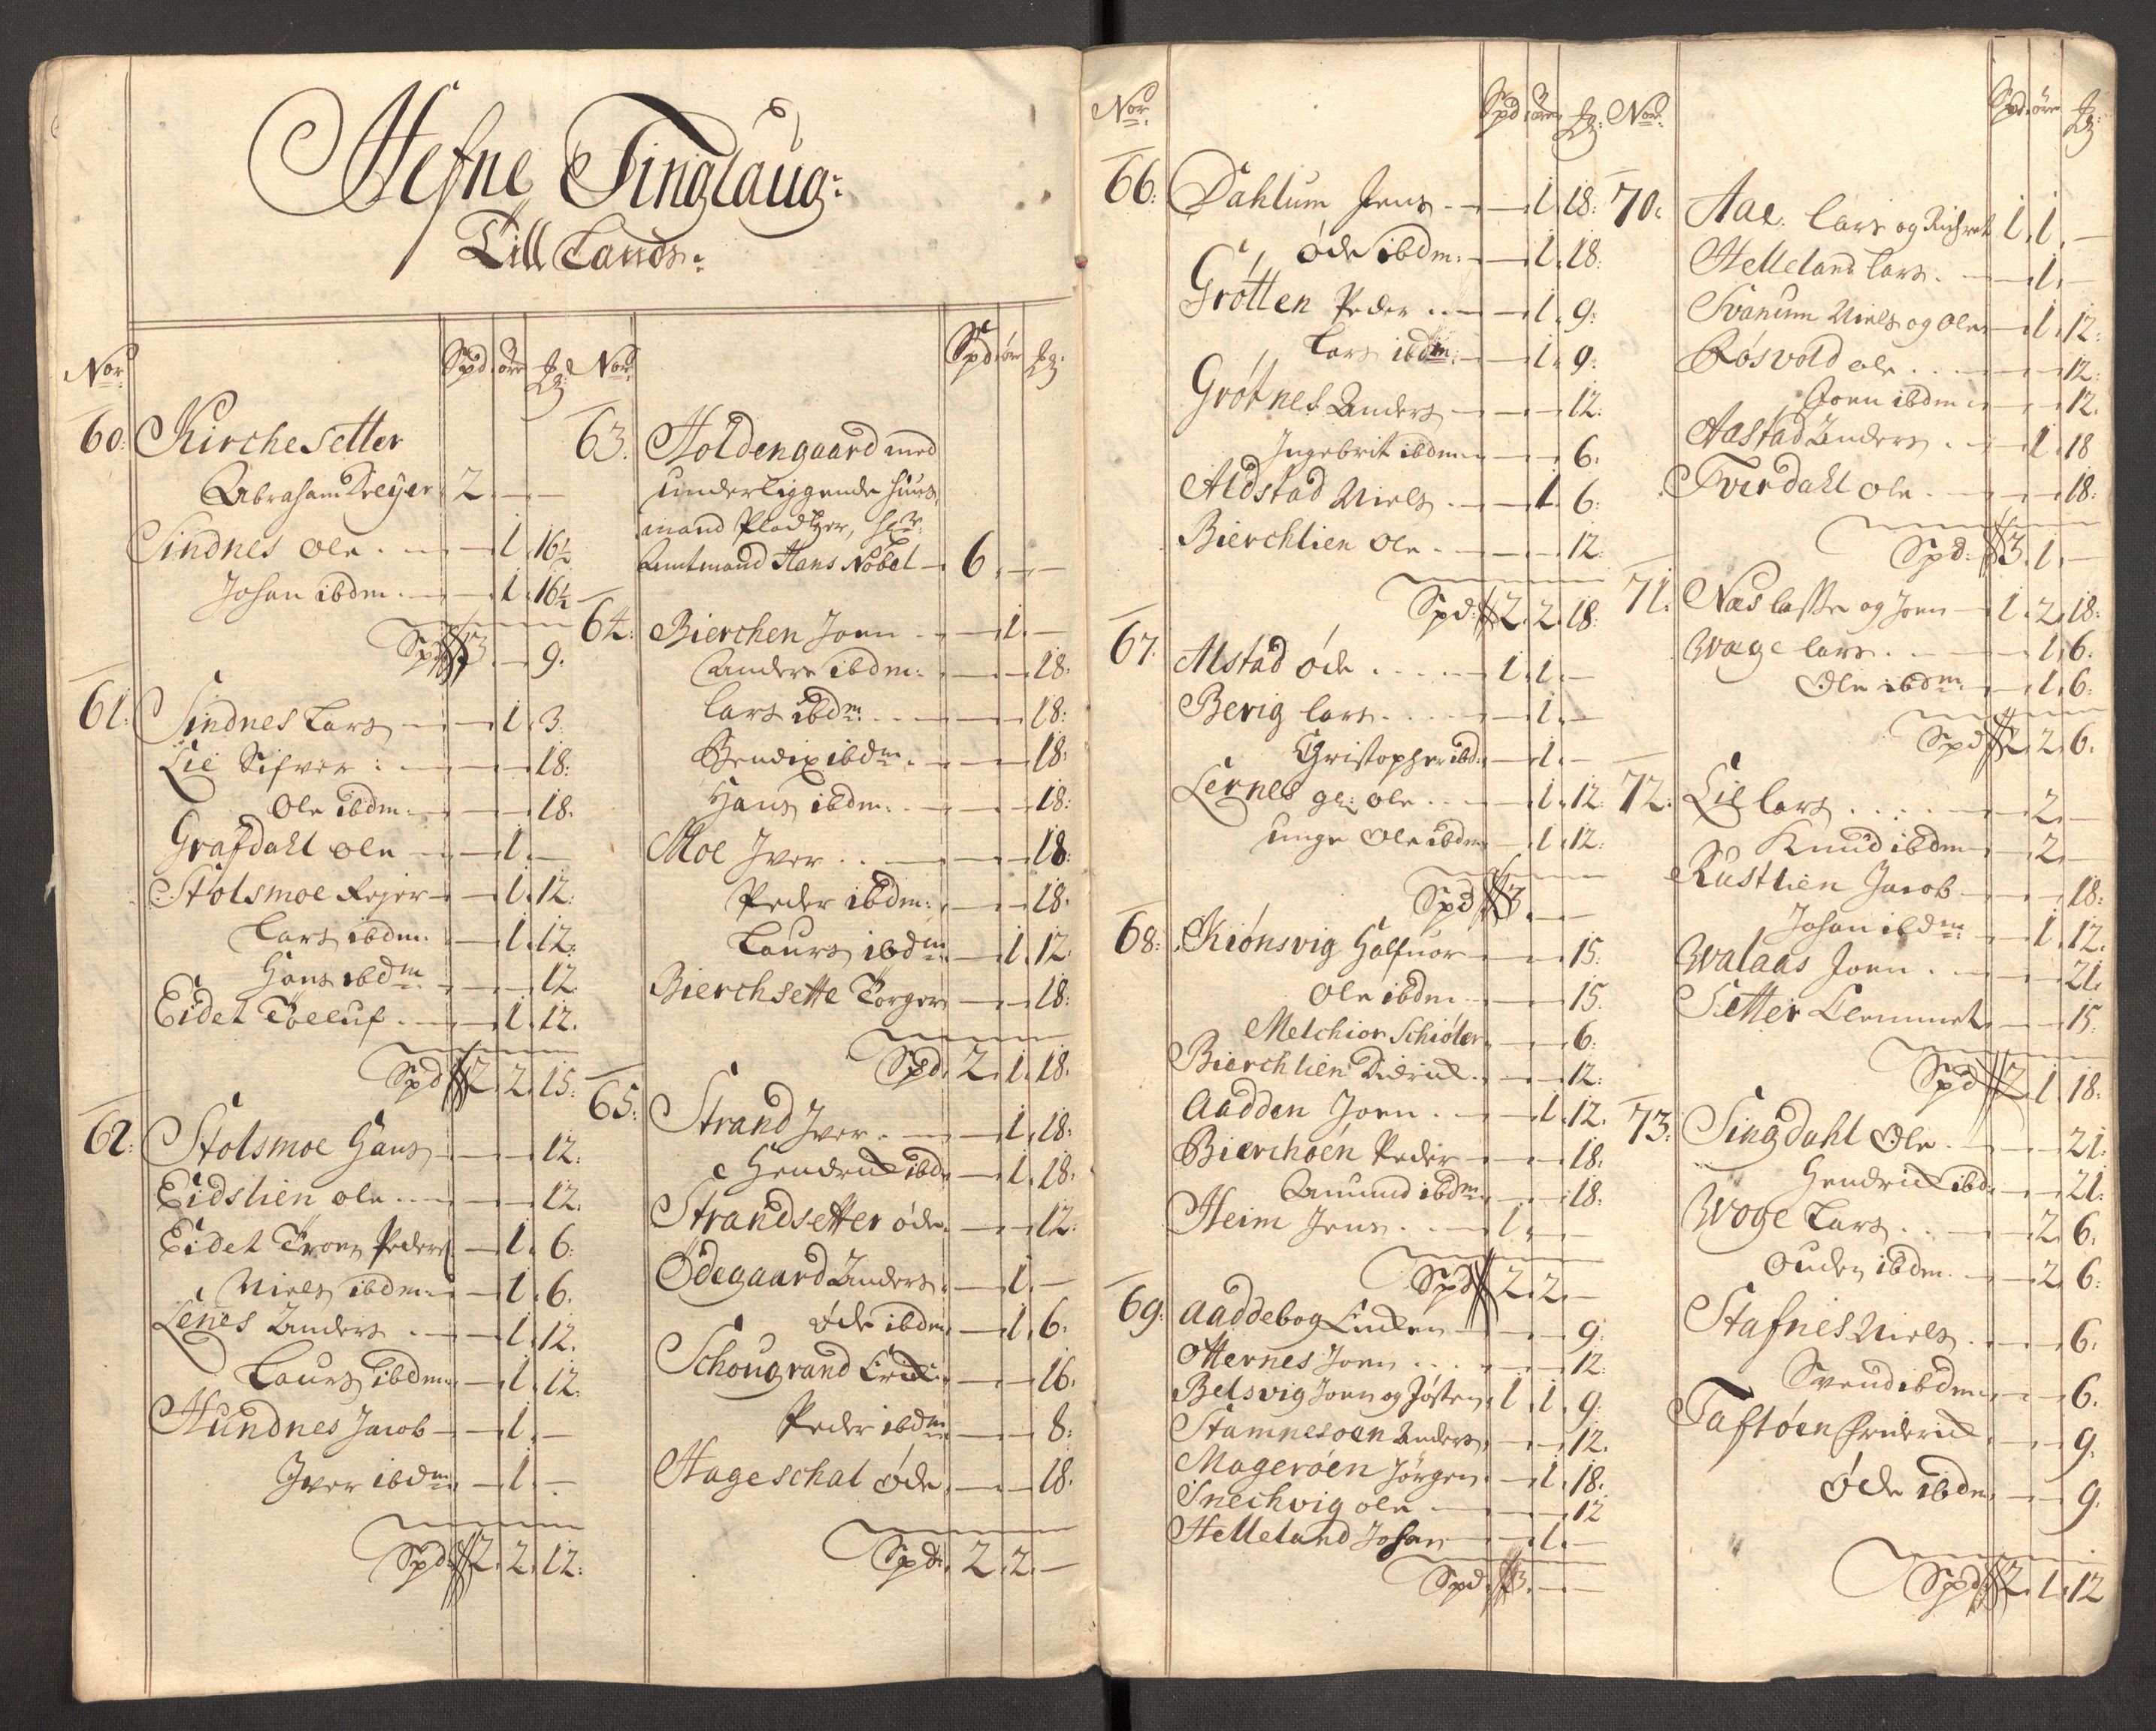 Hefne Tinglaug:
Till Lands:
Nor: Spd öre Lg:
60: Kirchesetter
Abraham Dreyer 2 — —
Sindnes Ole — 1. 16½
Johan ibdm. — 1. 16½
Spd 3 — 9.
61: Sindnes Lars — 1. 3.
Lie Sifver — — 18:
Ole ibdm. — — 18.
Grafdahl Ole — 1. —
Stolsmoe Rejer — 1. 12.
Lars ibdm. — 1. 12.
Hans ibdm — — 12.
Eidet Tøelluf — 1. 12.
Spd 2. 2. 15:
62: Stolsmoe Hans — — 12:
Eidslien ole — — 12.
Eidet Troen Peders — 1. 6:
Niels ibdm — 1. 6.
Lenes Anders — 1. 12.
Laurs ibdm — 1. 12.
Hundnes Jacob — 1. —
Iver ibdm — 1. —
Spd 2. 2. 12:
Nor: Spd öre Lg:
63. Holdengaard med
underliggende huus
mand Pladtzer, hr
Amtmand Hans Nobel — 6 — —
64: Bierchen Joen — 1. —
Anders ibdm. — — 18:
Lars ibdm. — — 18:
Bendix ibdm. — — 18:
Hans ibdm. — — 18:
Moe Iver — — 18:
Peder ibdm. — — 18.
Laurs ibdm — 1. 12.
Bierchsette Torger — — 18:
Spd. 2. 1. 18.
65: Strand Iver — 1. 18:
Hendrich ibd — 1. 18:
Strandsetter øde — — 12:
Ødegaard Anders — 1. —
øde ibdm — 1. 6.
Schougrand Erich — — 16.
Peder ibdm — — 8:
Hageschal Øde — — 18.
Spd. 2. 2. —
Nor: Spd öre Lg:
66: Dahlum Jens — 1. 18:
Øde ibdm. — 1. 18:
Grøtten Peder — 1. 9:
Lars ibdm. — 1. 9.
Grøtnes Anders — — 12:
Ingebrit ibdm — — 6.
Aldstad Niels — 1. 6:
Bierchlien Ole — — 12.
Spd: 2. 2. 18.
67. Alstad øde 1. 1. —
Berig lars — 1. —
Christopher ibd — 1. —
Lernes gl: ole — 1. 12:
unge Ole ibdm — 1. 12:
Spd 3 — —
68: Kiønsvig Halfuor — — 15.
Ole ibdm — — 15.
Melchior Schiøler — — 6:
Bierchlien Didrich — — 12:
Aadden Joen — 1. 12.
Bierchøen Peder — — 18.
Amund ibdm — — 18.
Heim Jens 1. — —
Spd 2. 2. —
69: Aaddebog Enken — — 9:
Otternes Joen — — 12:
Belsvig Joen og Jøsten 1. 1. 9:
Stamnesøen Anders — — 12.
Magerøen Jørgen — 1. 18:
Snechvig ole — — 12
Helleland Johan — 1. —
Spd. 3. — —
Nor: Spd öre Lg:
70: Aae. Lars og 1. 1. —
Helleland Lars — 1. —
Svanum Niels og Ole — 1. 12:
Røsvold ole — — 12:
Joen ibdm — — 12.
Aastad Anders — 1. 18
Tverdahl ole — — 18:
Spd: 3. 1. —
71. Næs lasse og Joen 1. 2. 18:
Wage lars — 1. 6.
Ole ibdm — 1. 6:
Spd 2. 2. 6.
72: Lie lars — 2. —
Knud ibdm — 2. —
Rustlien Jacob — — 18:
Johan ibdm — 1. 12.
Walaas Joen — — 21.
Setter Clemmet — — 15.
Spd 2 1 18:
73: Singdahl Ole — — 21:
Hendrich ibd — — 21:
Woge Lars — 2. 6.
Ouden ibdm — 2. 6:
Stafnes Niels — — 6.
Svend ibdm — — 6.
Taftøen Friderich — — 9.
Øde ibdm — — 9.
Spd 2. 1. 12